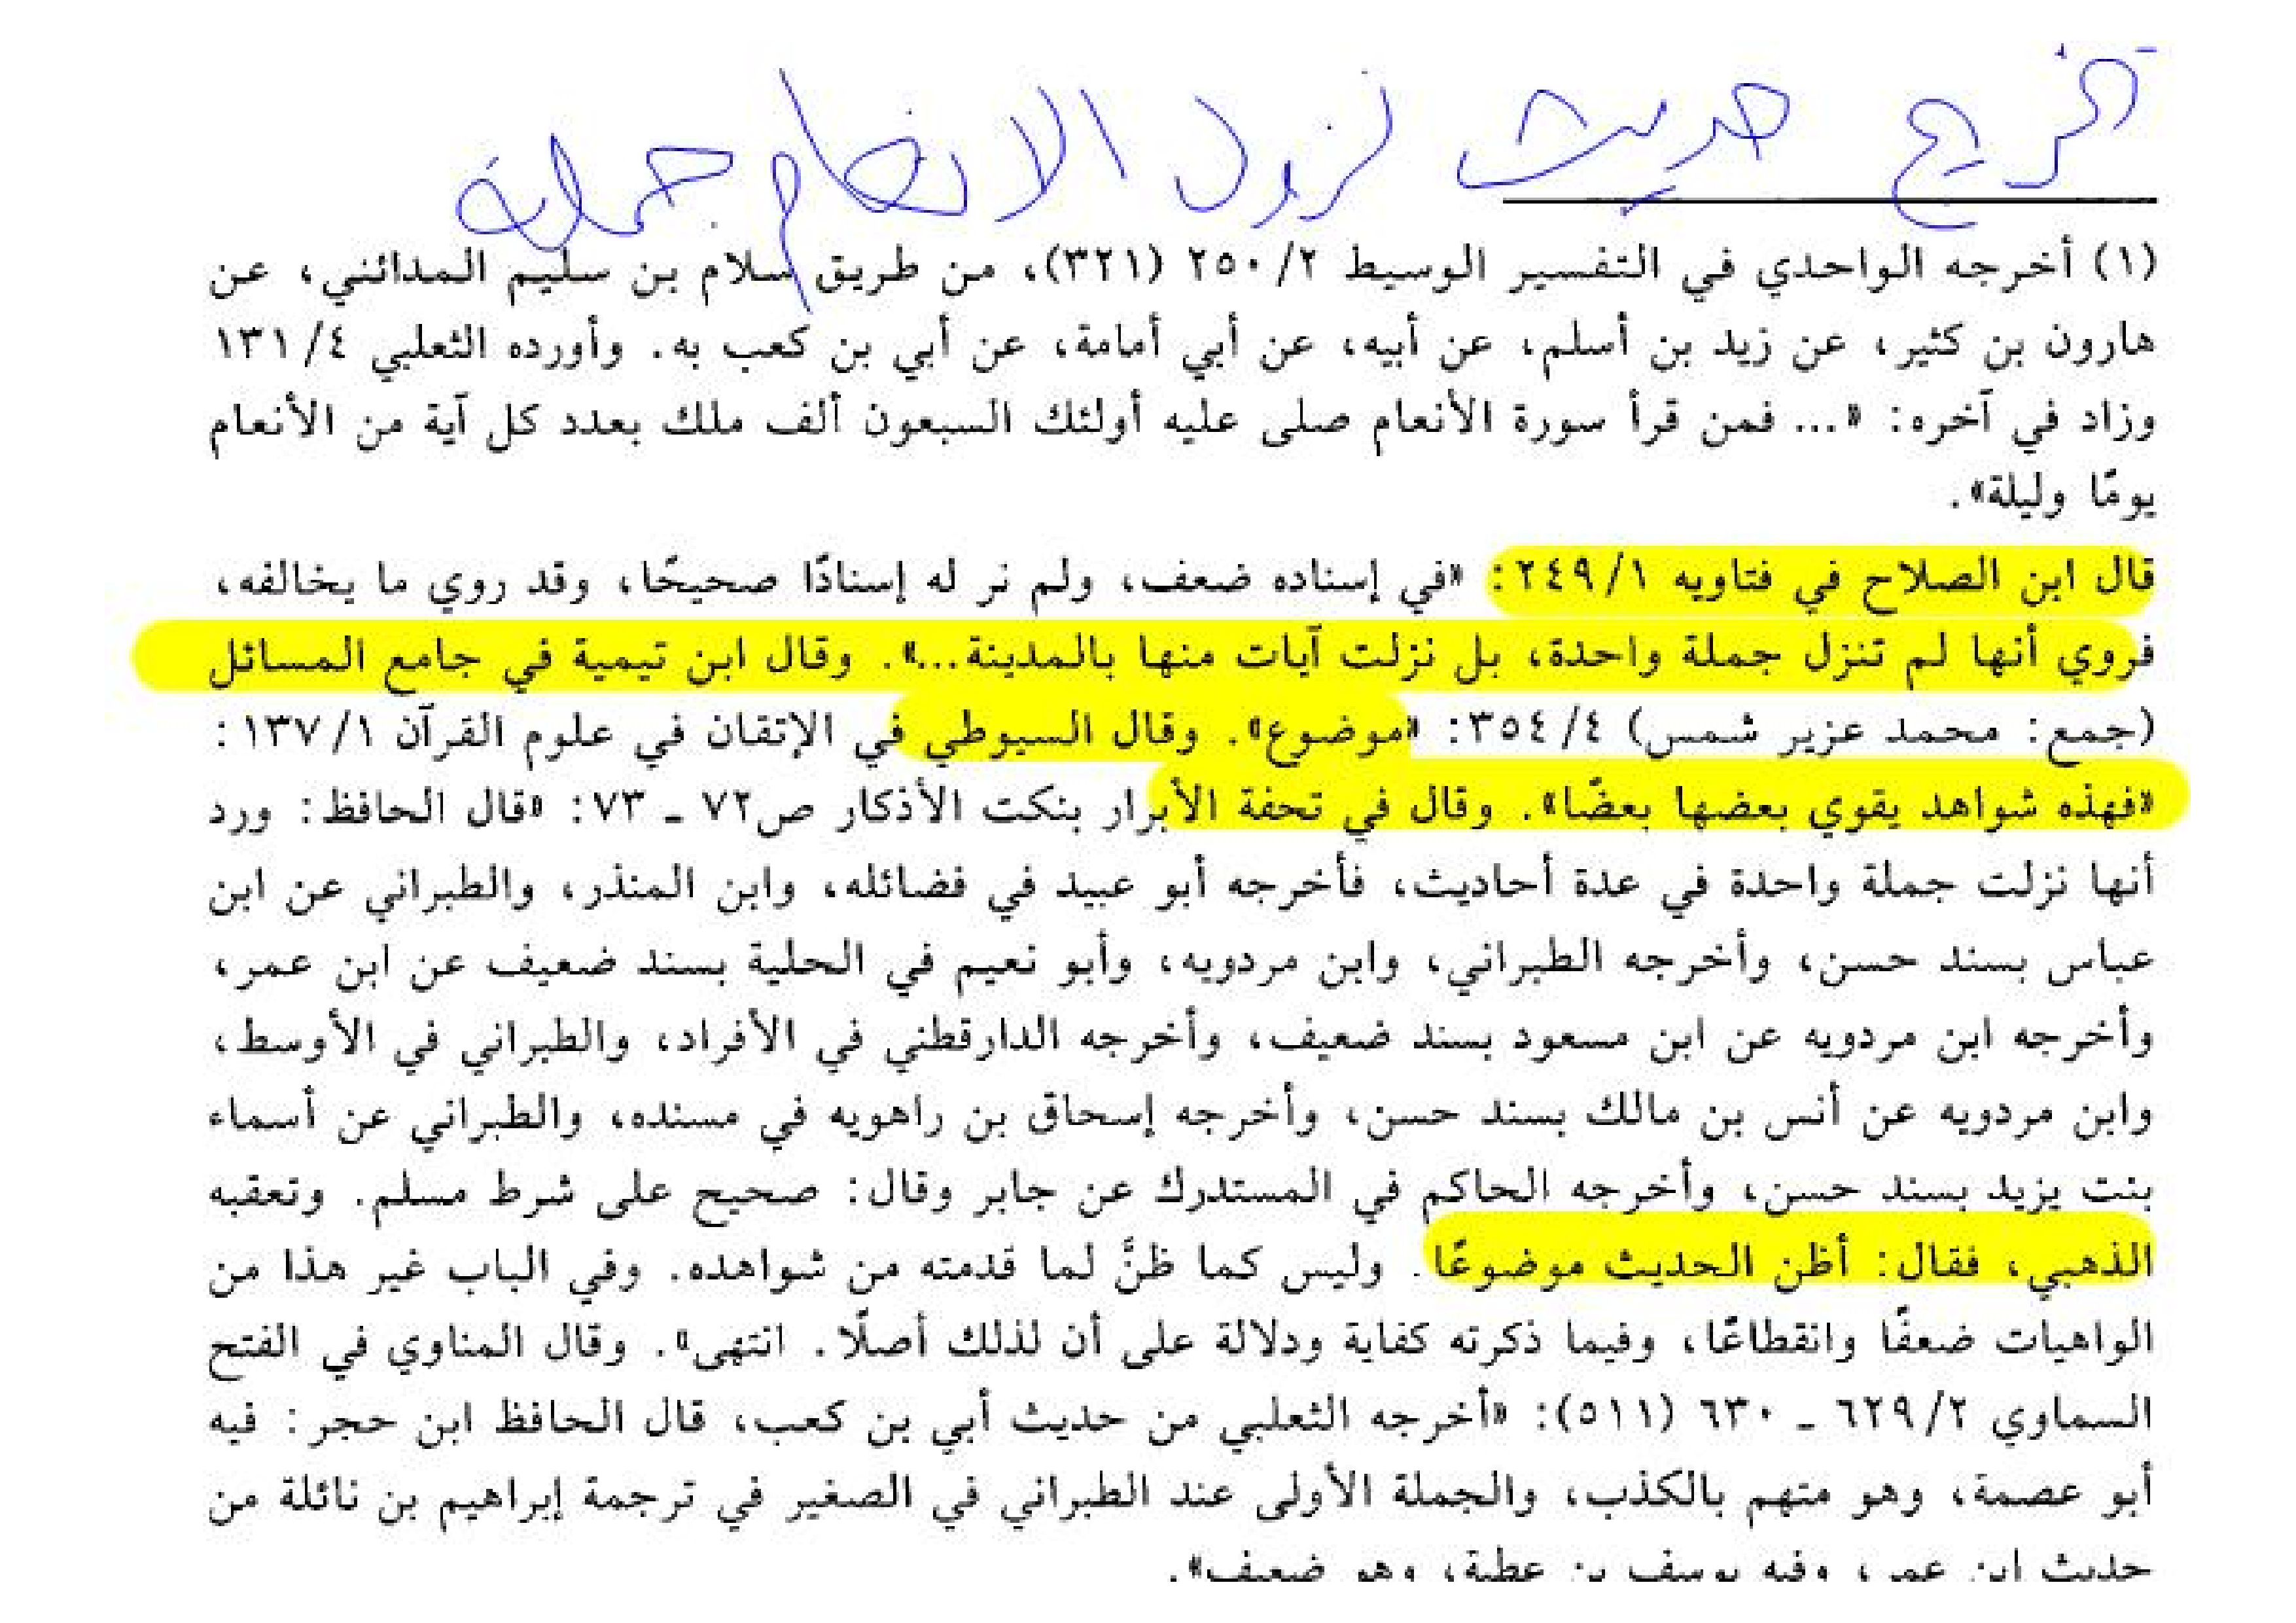 تخريج حديث نزول الانعام جملة
(١) أخرجه الواحدي في التفسير الوسيط ٢/ ٢٥٠ (٣٢١)، من طريق سلام بن سليم المدائني، عن
هارون بن كثير، عن زيد بن أسلم، عن أبيه، عن أبي أمامة، عن أبي بن كعب به. وأورده الثعلبي ٤/ ١٣١
وزاد في آخره: «... فمن قرأ سورة الأنعام صلى عليه أولئك السبعون ألف ملك بعدد كل آية من الأنعام
يومًا وليلة».
قال ابن الصلاح في فتاويه ١/ ٢٤٩: «في إسناده ضعف، ولم نر له إسنادًا صحيحًا، وقد روي ما يخالفه،
فروي أنها لم تنزل جملة واحدة، بل نزلت آيات منها بالمدينة...». وقال ابن تيمية في جامع المسائل
(جمع: محمد عزير شمس) ٤/ ٣٥٤: «موضوع». وقال السيوطي في الإتقان في علوم القرآن ١/ ١٣٧:
«فهذه شواهد يقوي بعضها بعضًا». وقال في تحفة الأبرار بنكت الأذكار ص٧٢ ـ ٧٣: «قال الحافظ: ورد
أنها نزلت جملة واحدة في عدة أحاديث، فأخرجه أبو عبيد في فضائله، وابن المنذر، والطبراني عن ابن
عباس بسند حسن، وأخرجه الطبراني، وابن مردويه، وأبو نعيم في الحلية بسند ضعيف عن ابن عمر،
وأخرجه ابن مردويه عن ابن مسعود بسند ضعيف، وأخرجه الدارقطني في الأفراد، والطبراني في الأوسط،
وابن مردويه عن أنس بن مالك بسند حسن، وأخرجه إسحاق بن راهويه في مسنده، والطبراني عن أسماء
بنت يزيد بسند حسن، وأخرجه الحاكم في المستدرك عن جابر وقال: صحيح على شرط مسلم. وتعقبه
الذهبي، فقال: أظن الحديث موضوعًا. وليس كما ظنَّ لما قدمته من شواهده. وفي الباب غير هذا من
الواهيات ضعفًا وانقطاعًا، وفيما ذكرته كفاية ودلالة على أن لذلك أصلًا. انتهى». وقال المناوي في الفتح
السماوي ٢/ ٦٢٩ ـ ٦٣٠ (٥١١): «أخرجه الثعلبي من حديث أبي بن كعب، قال الحافظ ابن حجر: فيه
أبو عصمة، وهو متهم بالكذب، والجملة الأولى عند الطبراني في الصغير في ترجمة إبراهيم بن نائلة من
حديث ابن عمر، وفيه يوسف بن عطية، وهو ضعيف».